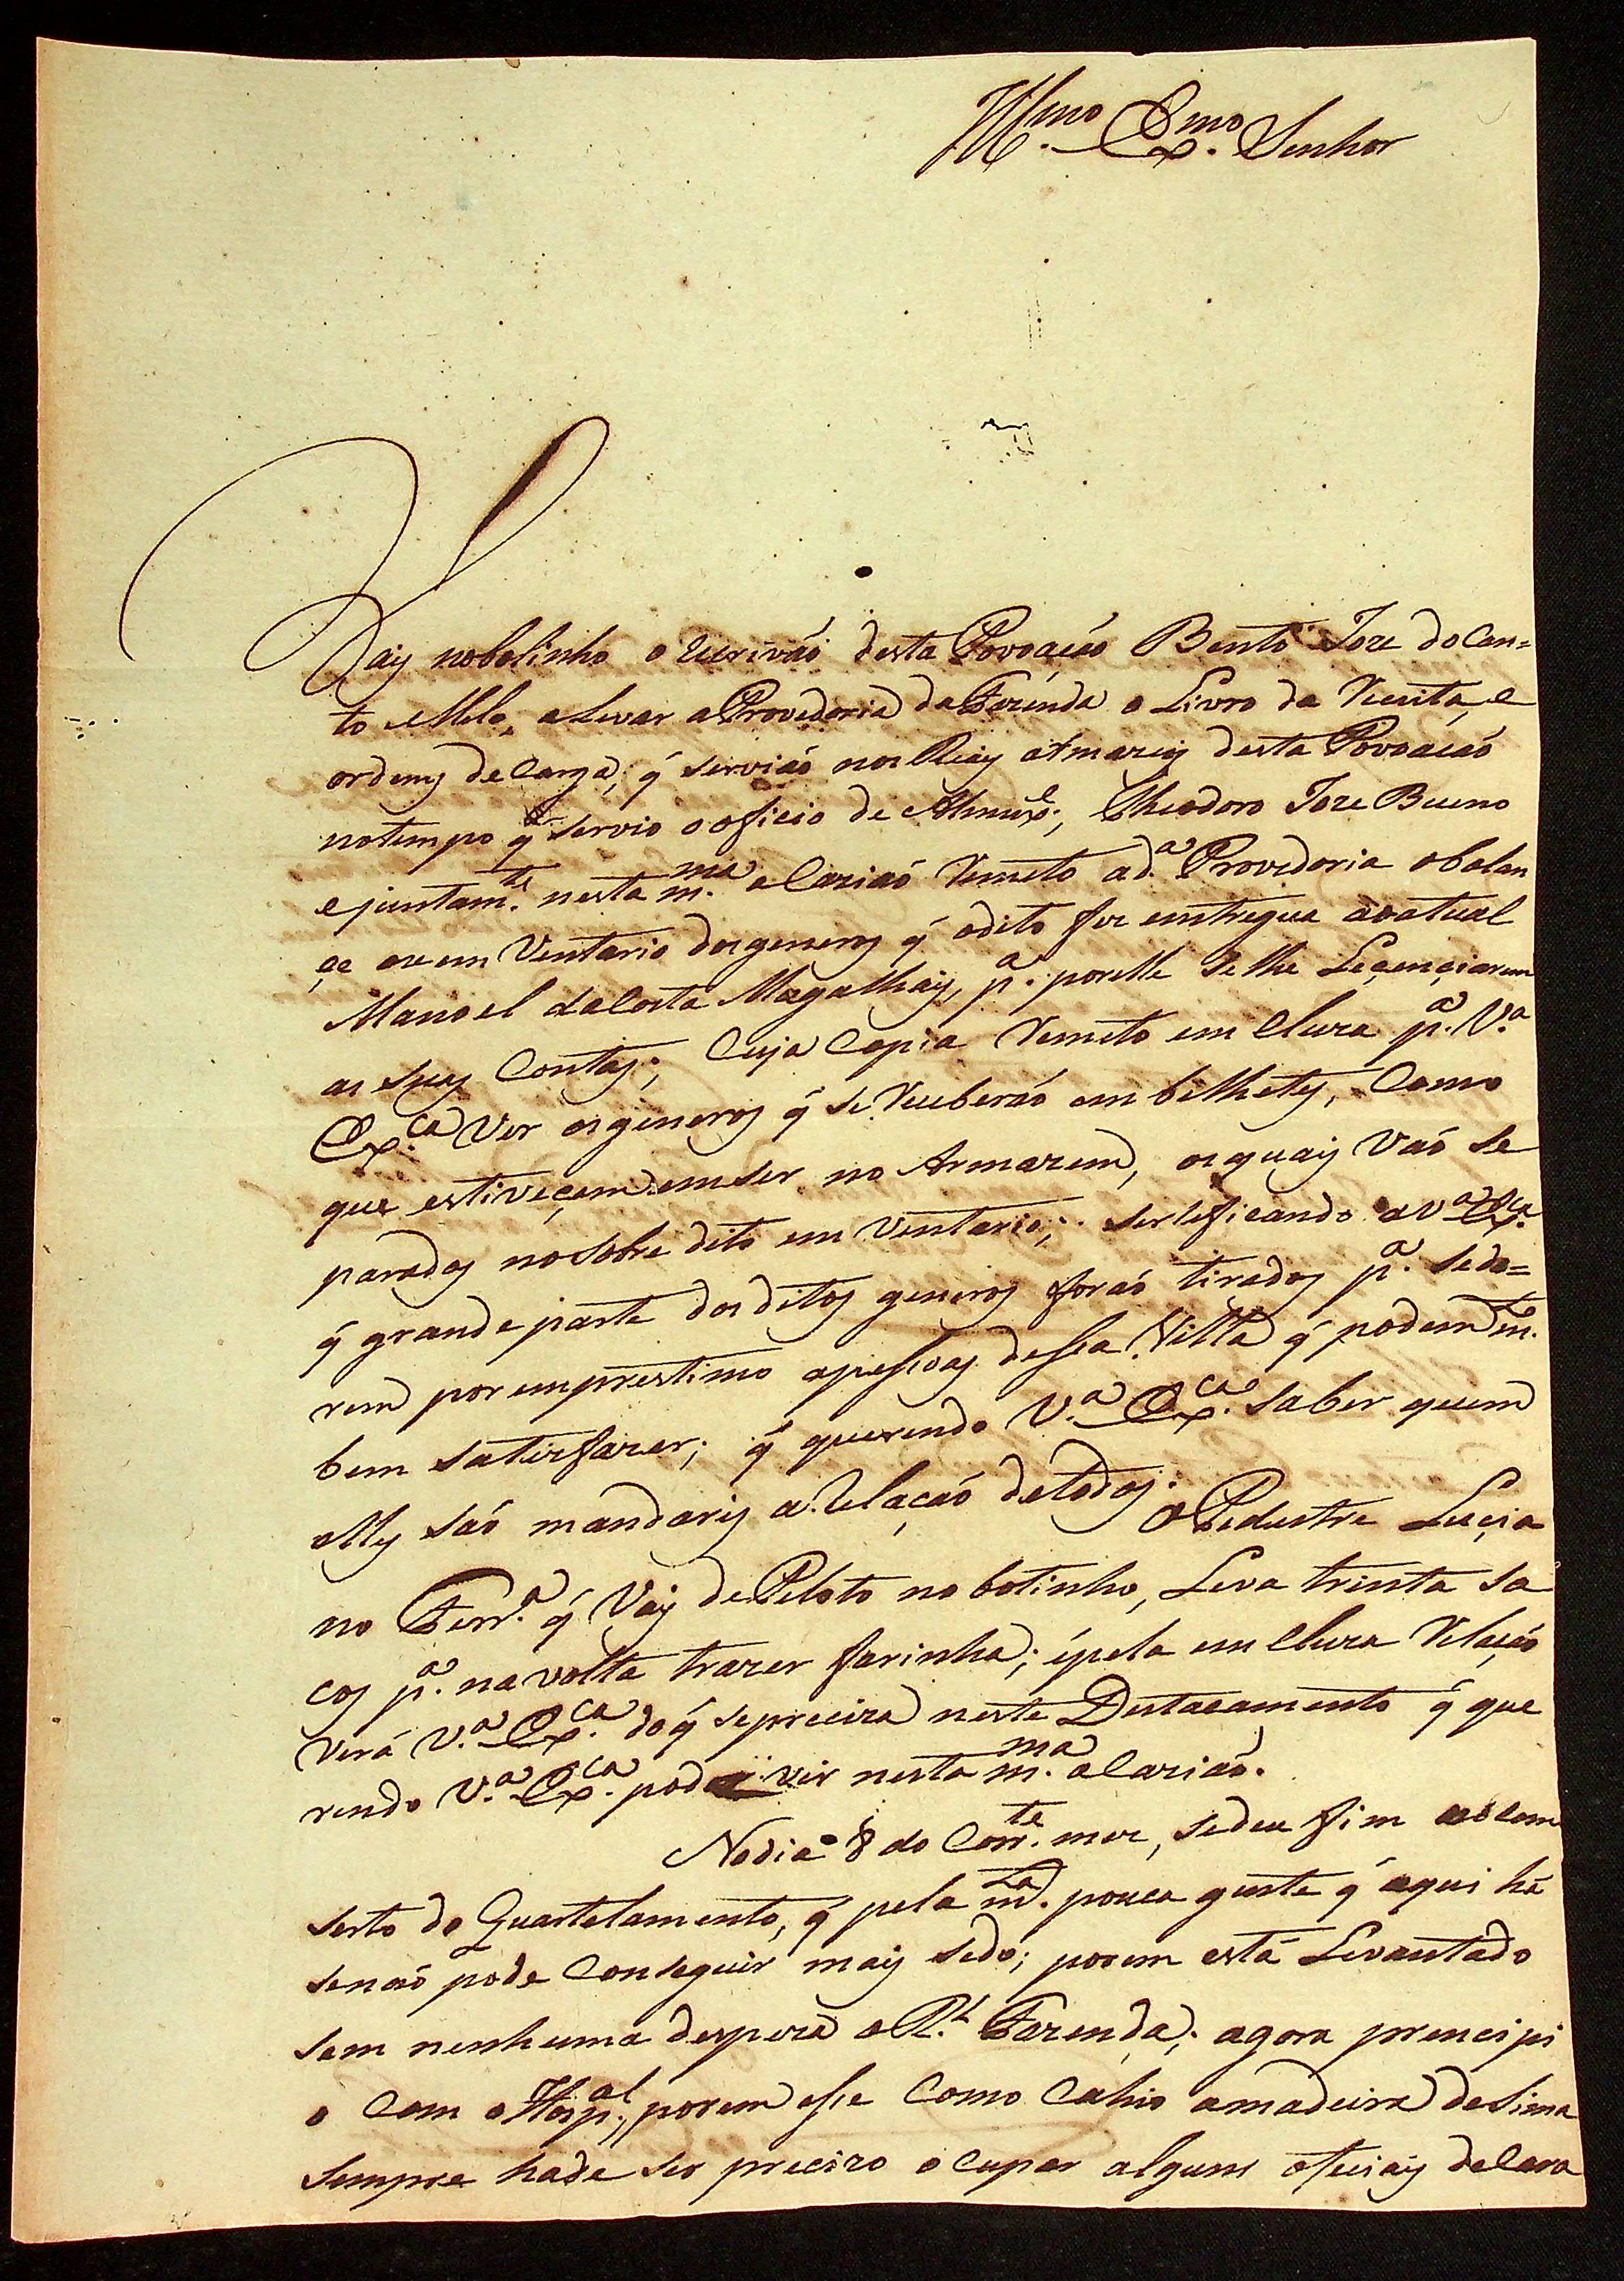 Ill.mo Ex.mo Senhor
Vay nobotinho o escrivaó desta Povoacáo Bento Joze do Can=
to eMelo, a Levar a Provedoria da Fazenda o Livro da Receita, e
ordens de Carga, q̃ serviáo nos Reay Armazeis desta Povoacáo
notempo q̃ servio o oficio de Almox.e, Theodoro Joze Bueno
e juntam.te nesta m.ma ocaziaó Remeto a d.a Provedoria obalan
çe ou emVentario dosgeneros q̃ odito fes emtregue ao atual
Manoel daCosta Magalhaiş, p.a porelle se lhe Leçençiarem
as suas Contas; Cuja Copia Remeto em Cluza p.a V.a
Ex.ca Ver osgeneros q̃ se Reseberáo em bilhetes, Como
que estiveçem emser no Armazem, osquais Vaó se
parados nosobre dito em Ventario; serteficando a V.a Ex.ca
q̃ grande parte dos ditos generos foraó tirados p.a seda=
rem por emprestimo apessoas dessa Villa q̃ podem m.to
bem satisfazer; q̃ querendo V.a Ex.ca saber quem
elles saó mandarey a Relaçaó detodos. OPedestre Luçia
no Ferr.a q̃ Vay de Piloto no botinho, Leva trinta sa
cos p.a navolta trazer farinha; épela em Cluza Relaçáo
verá V.a Ex.ca do q̃ sepreciza neste Destacamento q̃ que
rendo V.a Ex.ca pode vir nesta m.ma ocaziaó.
Nodia 8 do Corr.te mez, sedeu fim aoCon
serto do Quartelamento, q̃ pela m.ta pouca gente q̃ aqui há
senaó pode Conseguir mais sedo; porem está Levantado
sem nenhuma despeza a R.l Fazenda; agora prencipi
o Com o Hosp.al, porem esse Como Cahio amadeira desima
sempre hade ser precizo o cupar alguns ofeciais deCara